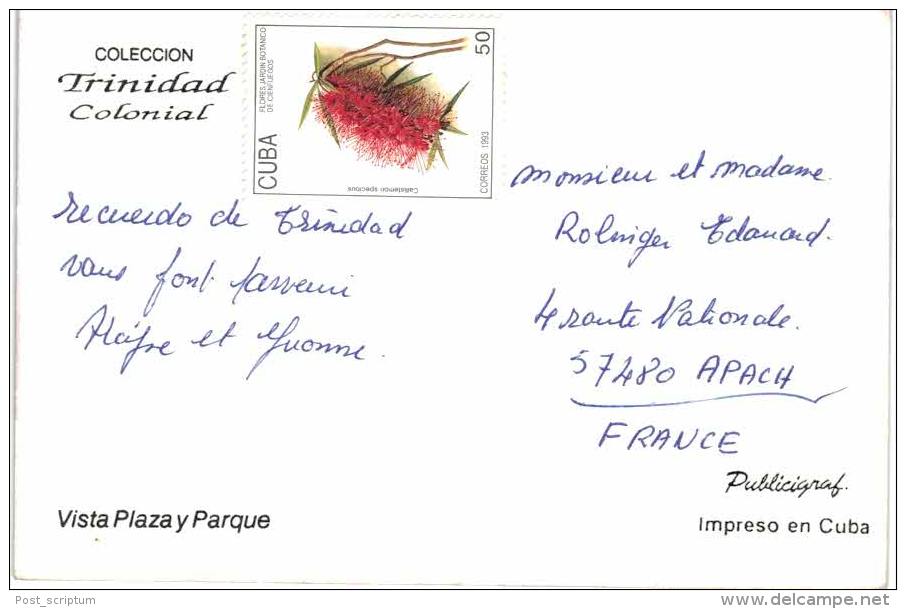 COLECCION
Trinidad
Colonial
CUBA
FLORES JARDIN BOTANICO
DE CIENFUEGOS
50
CORREOS 1993
Callistemon speciosus
recuerdo de Trinidad
vous font parvenir
et Yvonne.
monsieur et madame.
Edouard.
4 route Nationale.
57480 APACH
FRANCE
Vista Plaza y Parque
Publicigraf.
Impreso en Cuba
Post_scriptum
delcampe.net